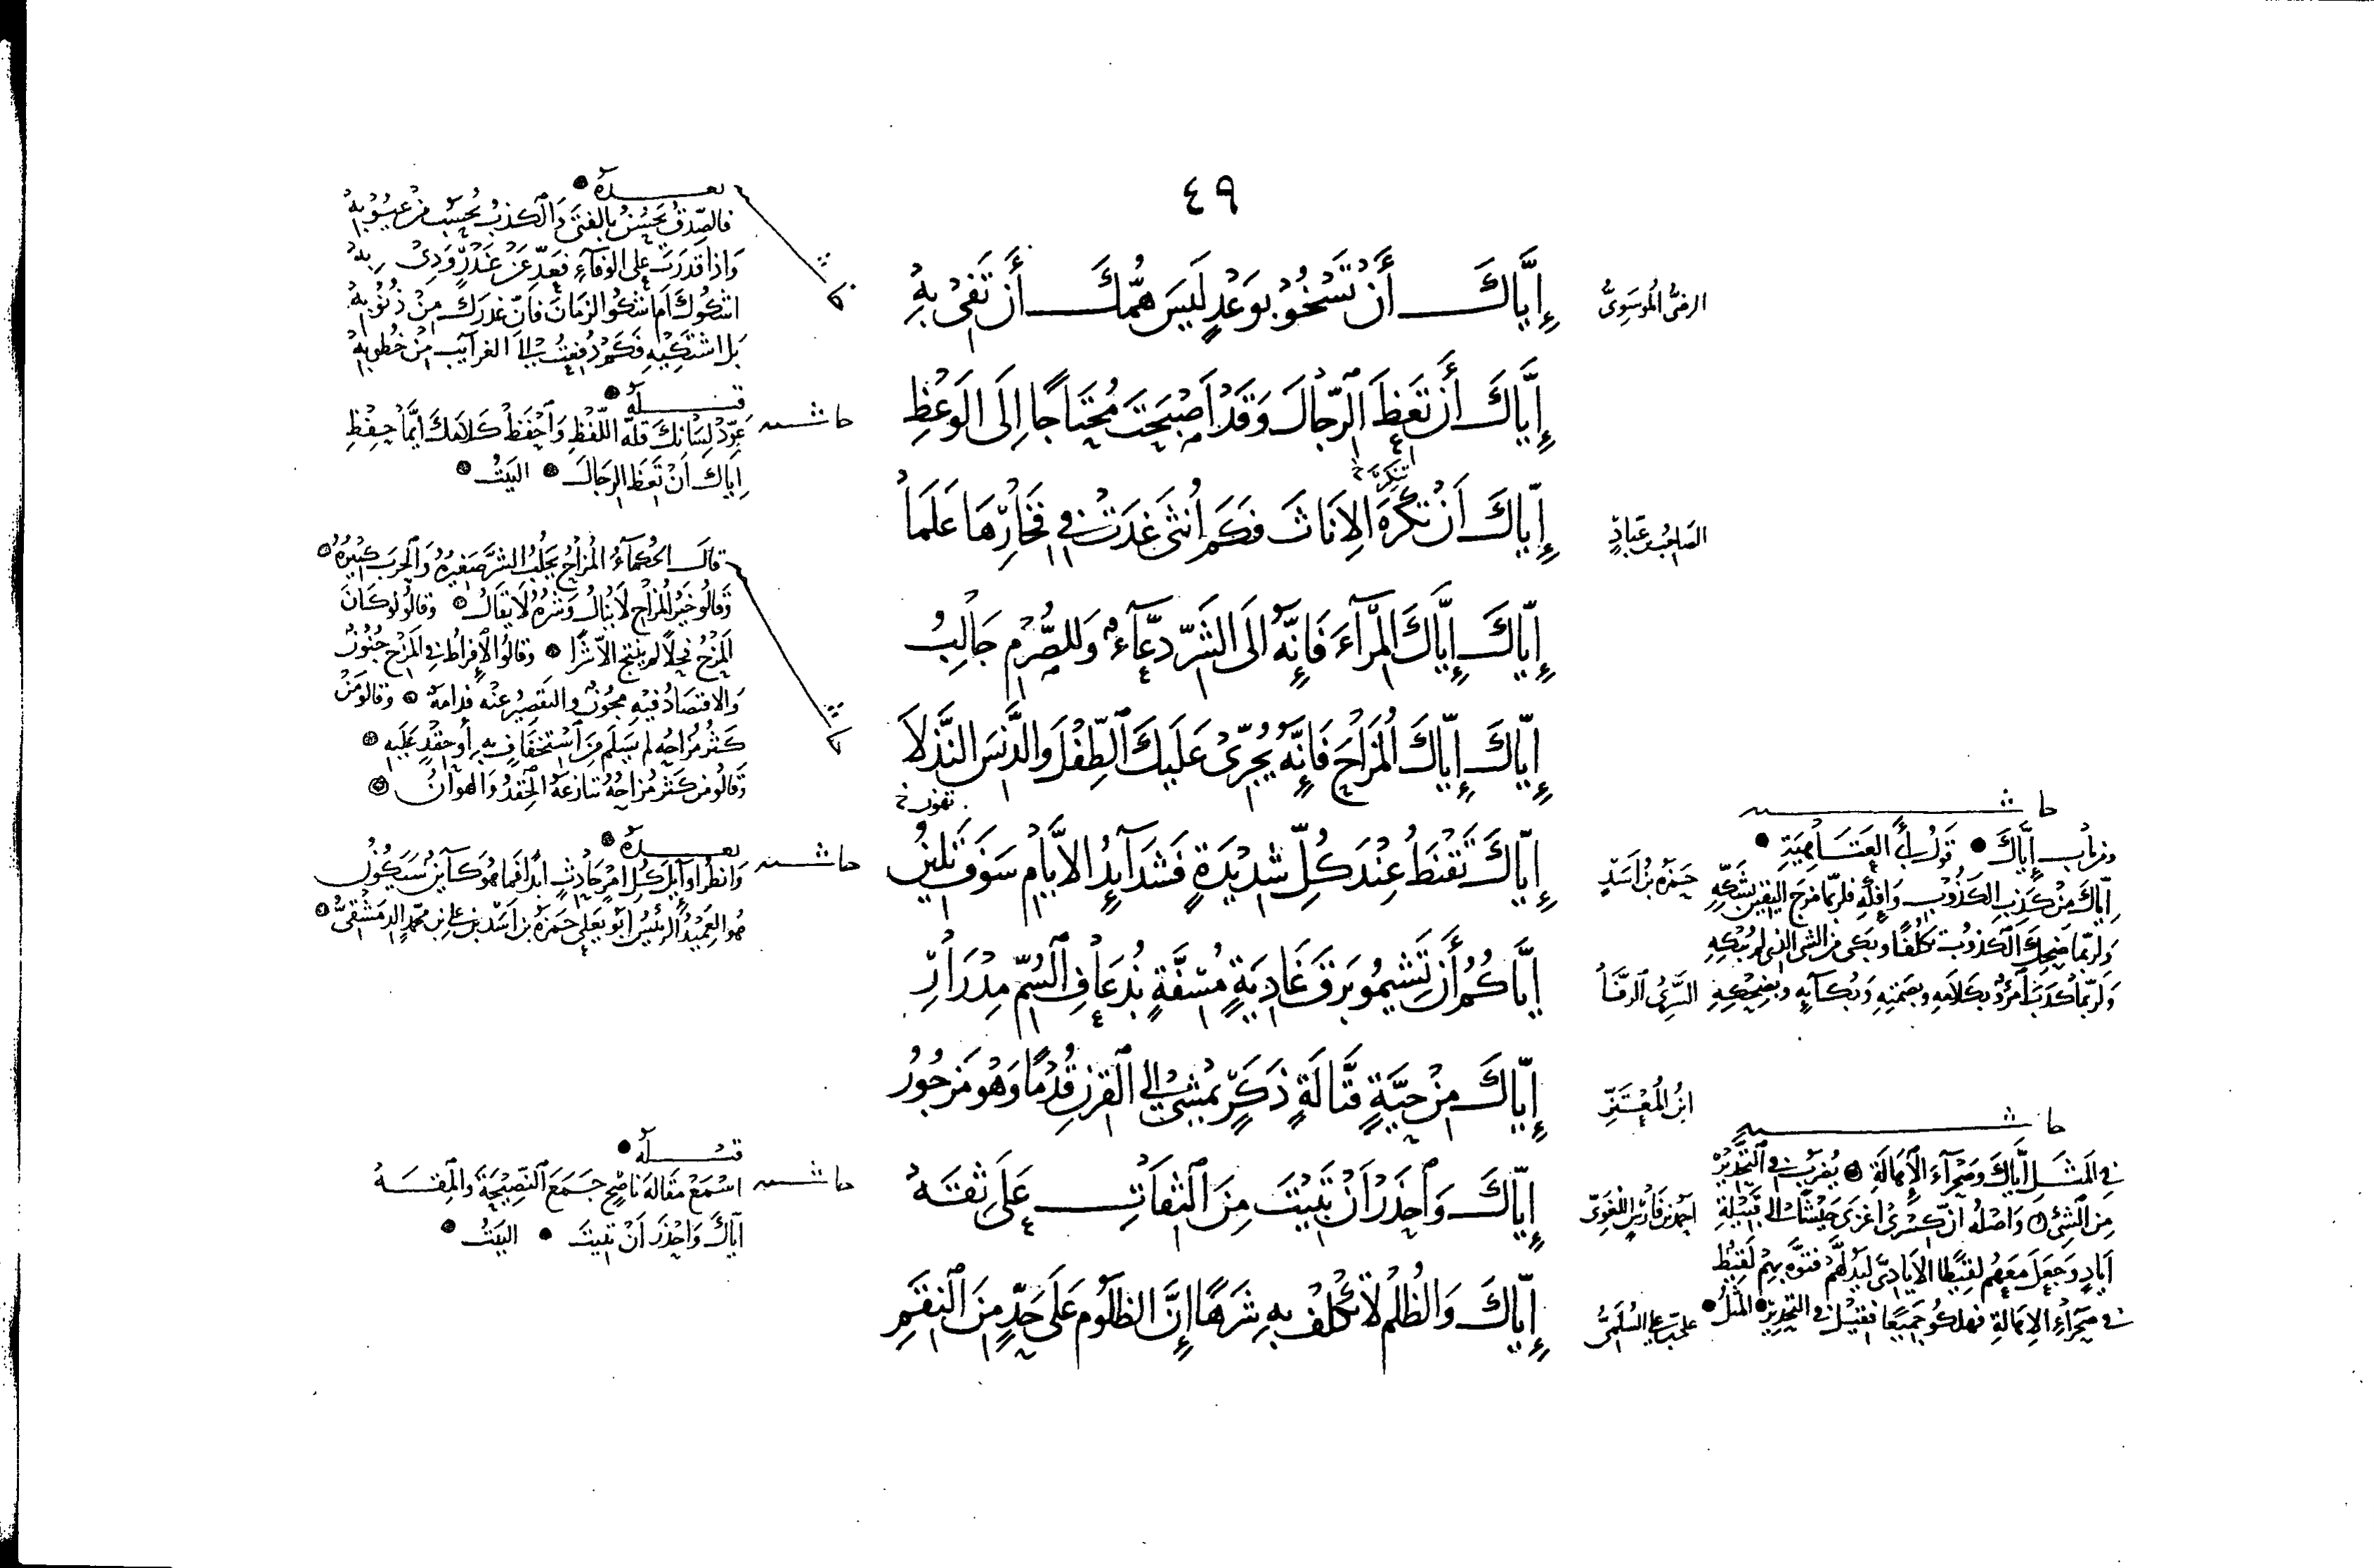 ٤٩
الرضى الموسوى
إِيَّاكَ أَنْ تَسْخُوْ بِوَعْدٍ لَيسَ هَمُّكَ أَن تَفِىْ بِهِ
إِيَّاكَ أَن تَعِظَ الرِّجَالَ وَقَدْ أَصْبَحْتَ مُحْتَاجًا إِلَى الوَعْظِ
الصاحب بن عباد
إِيَّاكَ أَنْ تَكْرَهَ الإِنَاثَ فَكَم أُنثَى غَدَتْ فِي فَخَارِهَا عَلَمَا
إِيَّاكَ إِيَّاكَ المِرَآءَ فَإِنَّهُ الَى الشَّرِّ دَعَّآءٌ وَلِلصُّرْمِ جَالِبُ
إِيَّاكَ إِيَّاكَ المُزَاحَ فَإِنَّهُ يُجَرِّىْ عَلَيكَ الطِّفْلَ والدَّنِسَ النَّذْلَا
تهون خ
حمزة بن أسد
إِيَّاكَ تَقْنَطُ عِنْدَ كُلِّ شَدِيْدَةٍ فَشَدَآيِدُ الأَيَّامِ سَوْفَ تَلِيْنُ
السرى الرفا
إِيَّاكُمُ أَن تَشِيْمُو بَرْقَ غَادِيَةٍ مُسِفَّةٍ بِذُعَافِ السُّمِّ مِدْرَارِ
ابن المعتز
إِيَّاكَ مِنْ حَيَّةٍ قَتَّالَةٍ ذَكَرٍ يَمْشِىْ إِلَى القِرْنِ قُدْمًا وَهْوَ مَزجُورُ
أحمد بن فارس اللغوى
إِيَّاكَ وَاحْذَرْ أَنْ تَبِيْتَ مِنَ الثِّقَاتِ عَلَى ثِقَهْ
على السلمى
إِيَّاكَ وَالظُّلْمَ لَا تَكْلَفْ بِهِ شَرَهًا إِنَّ الظَّلُومَ عَلَى حَدٍّ مِنَ النِّقَمِ
حاشية
بعده
فالصدق يحسن بالفتى والكذب يحسب من عيوبه
واذا قدرت على الوفاء فعد عن غدر ودى به
اشكوك ام اشكو الزمان فان غدرك من ذنوبه
بل اشتكيه فكم دفعت الى الغرايب من خطوبه
حاشية
قبله
عود لسانك قلة اللفظ واحفظ كلامك أيما حفظ
اياك ان تعظ الرجال البيت
حاشية
قال الحكماء المزاح يجلب الشر صغيره والحرب كبيره
وقالو خير المزاح لا ينال وشره لا يقال وقالو لو كان
المزح فحلا لم ينتج الا شرا وقالو الإفراط فى المزح جنون
والاقتصاد فيه مجون والتقصير عنه فدامة وقالو من
كثر مزاحه لم يسلم من استخفاف به أو حقد عليه
وقالو من كثر مزاحه تنازعه الحقد والهوان
حاشية
بعده
وانظر اوآيل كل امر حادث أبدا فما هو كآين سيكون
هو العميد الرئيس ابو يعلى حمزة بن اسد بن على بن محمد الدمشقى
حاشية
قبله
اسمع مقالة ناصح جمع النصيحة والمقه
اياك واحذر ان تبيت البيت
حاشية
ومن باب إياك قول أبى العتاهية
إياك من كذب الكذوب وإفكه فلربما مزج اليقين بشكه
ولربما ضحك الكذوب تكلفا وبكى من الشى الذى لم يبكه
ولربما كذب امرؤ بكلامه وبصمته وبكآيه وبضحكه
حاشية
فى المثل اياك وصحرآء الإهالة يضرب فى التحذير
من الشىء واصله ان كسرى اغزى جيشا الى قبيلة
اياد وجعل معهم لقيطا الايادى ليدلهم فتوه بهم لقيط
فى صحرآء الإهالة فهلكو جميعا فقيل فى التحذير المثل